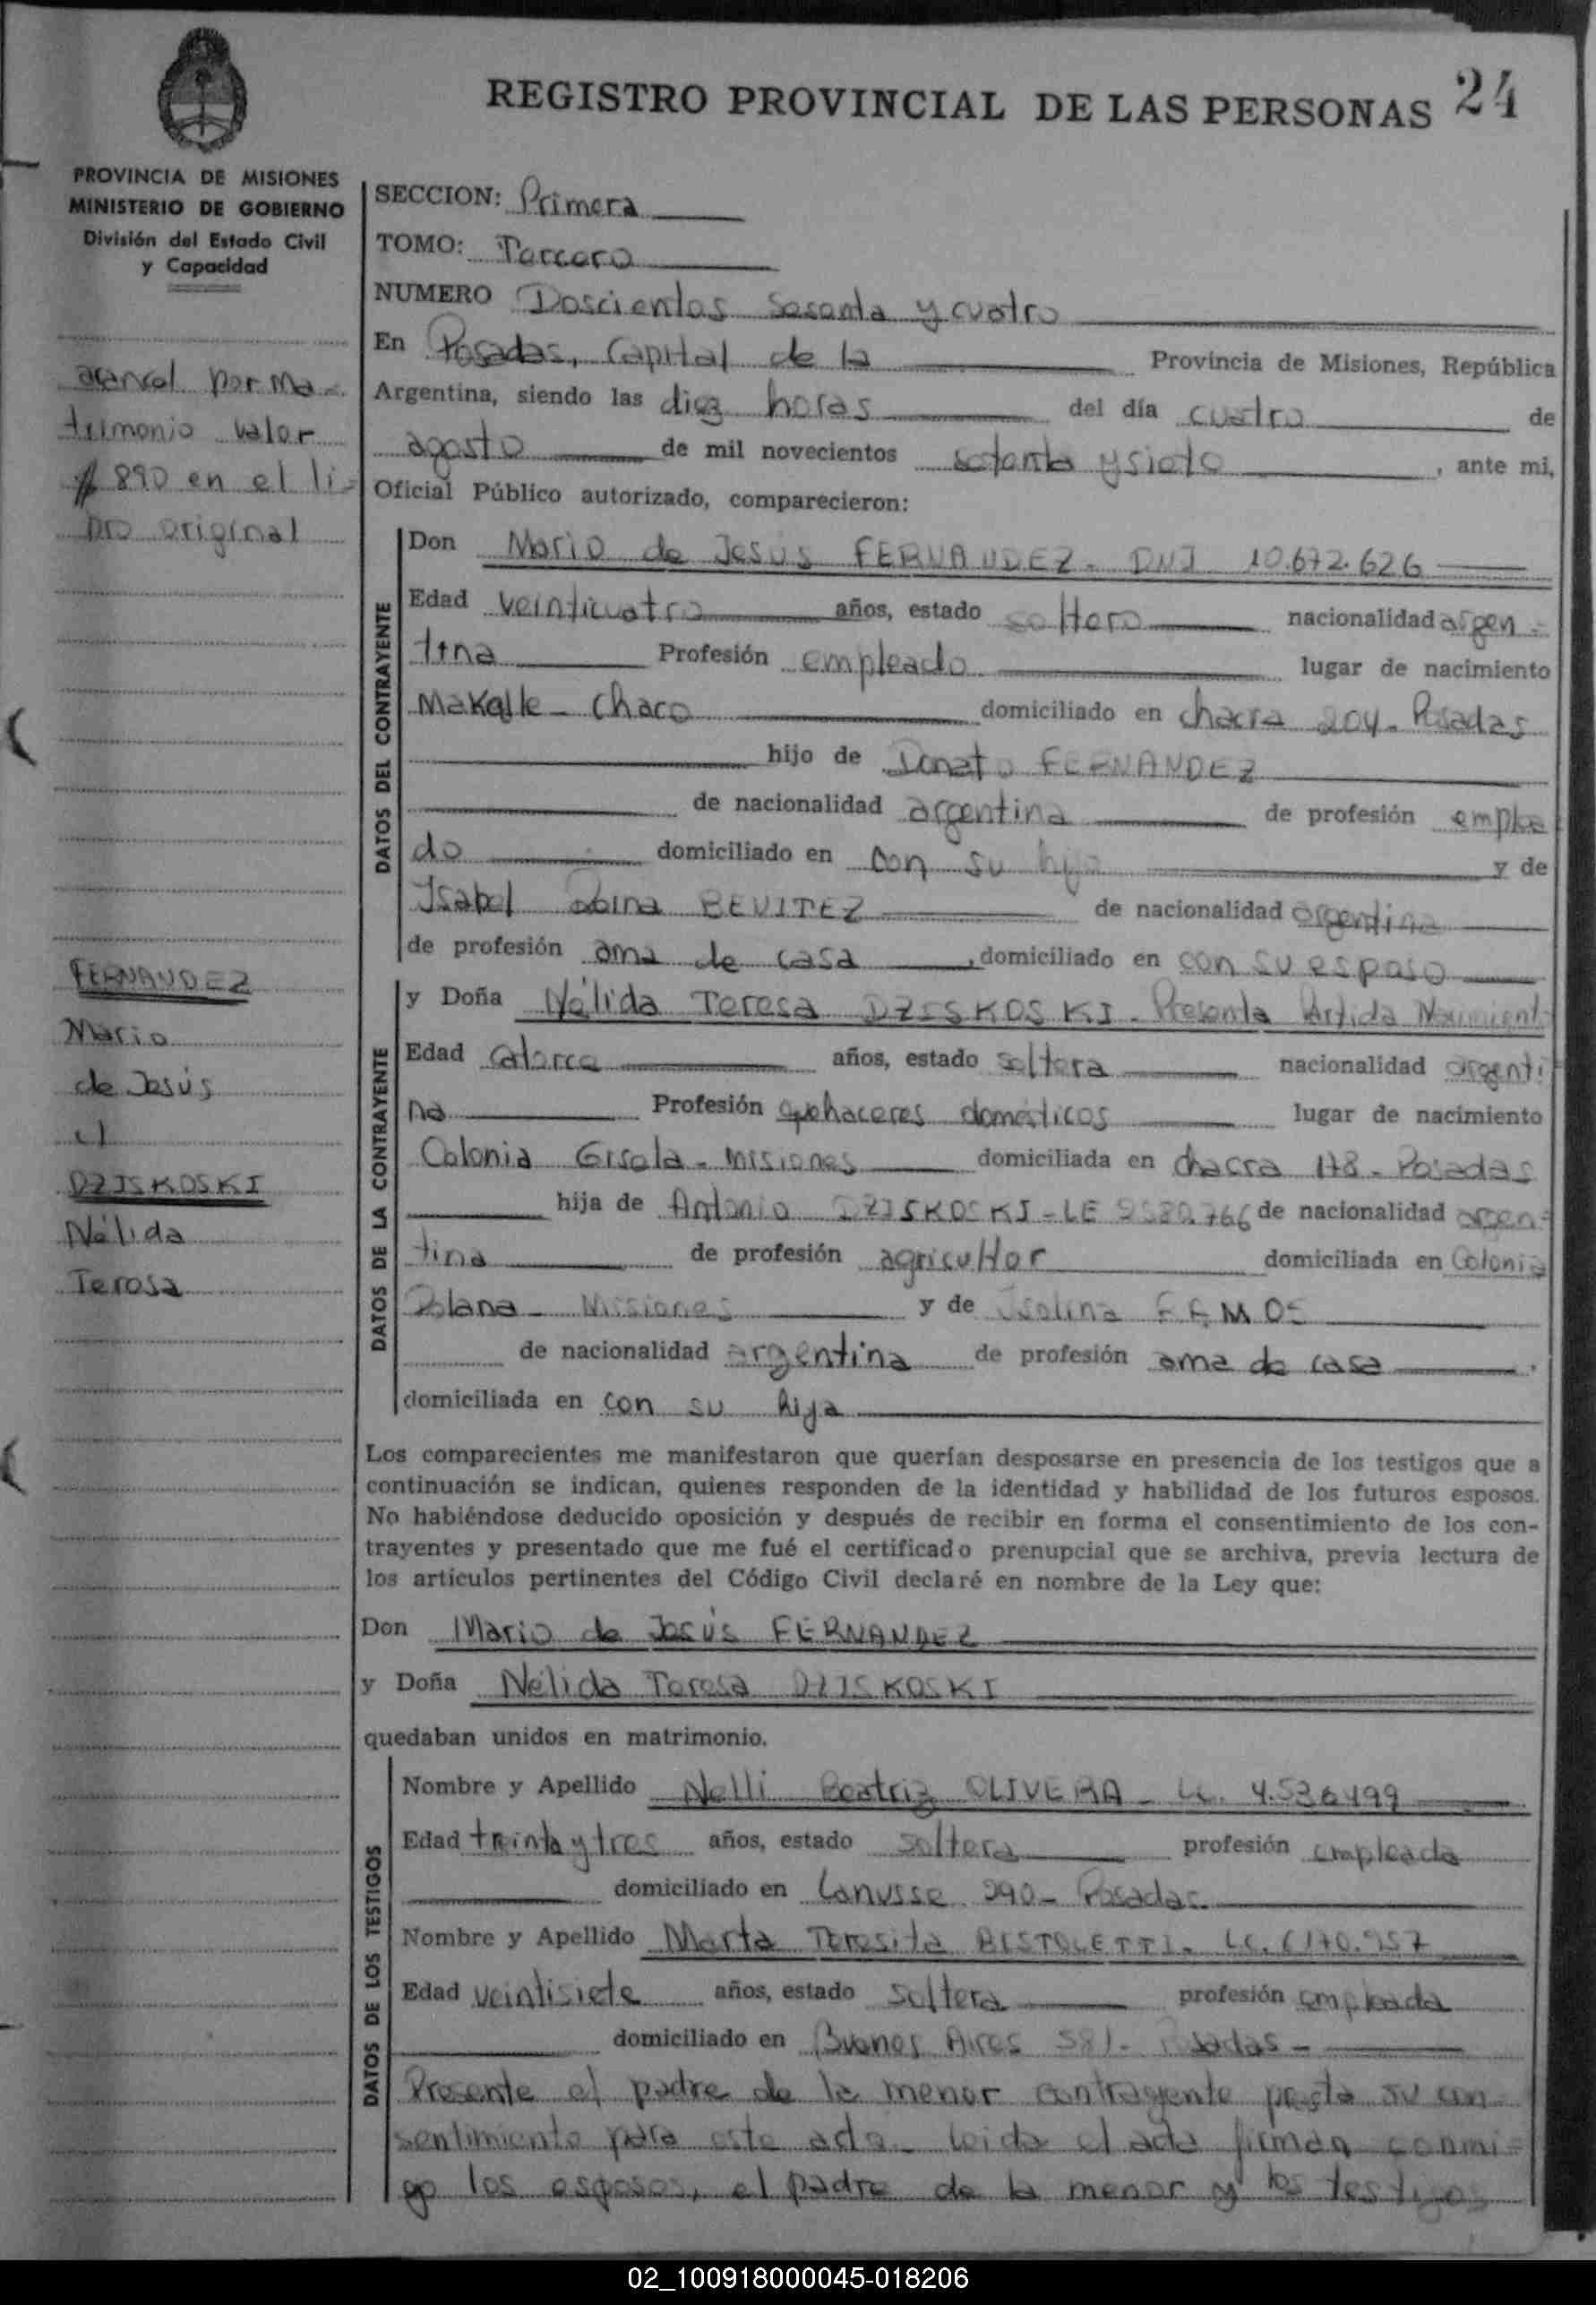 REGISTRO PROVINCIAL DE LAS PERSONAS 24
PROVINCIA DE MISIONES
MINISTERIO DE GOBIERNO
División del Estado Civil
y Capacidad
arancel por ma-
trimonio valor
$ 890 en el li-
bro original
FERNANDEZ
Mario
de Jesús
c/
DZISKOSKI
Nélida
Teresa
SECCION: Primera
TOMO: Tercero
NUMERO Doscientos sesenta y cuatro
En Posadas, Capital de la Provincia de Misiones, República
Argentina, siendo las diez horas del día cuatro de
agosto de mil novecientos setenta y siete, ante mi,
Oficial Público autorizado, comparecieron:
DATOS DEL CONTRAYENTE
Don Mario de Jesús FERNANDEZ - DNI 10.672.626
Edad veinticuatro años, estado soltero nacionalidad argen-
tina Profesión empleado lugar de nacimiento
Makalle - Chaco domiciliado en chacra 204 - Posadas
hijo de Donato FERNANDEZ
de nacionalidad argentina de profesión emplea
do domiciliado en con su hijo y de
Isabel BENITEZ de nacionalidad argentina
de profesión ama de casa, domiciliado en con su esposo
DATOS DE LA CONTRAYENTE
y Doña Nélida Teresa DZISKOSKI - Presenta Partida Nacimiento
Edad catorce años, estado soltera nacionalidad argenti
na Profesión quehaceres domésticos lugar de nacimiento
Colonia Gisela - Misiones domiciliada en chacra 178 - Posadas
hija de Antonio DZISKOSKI - LE de nacionalidad argen-
tina de profesión agricultor domiciliada en Colonia
Polana - Misiones y de Isolina RAMOS
de nacionalidad argentina de profesión ama de casa.
domiciliada en con su hija
Los comparecientes me manifestaron que querían desposarse en presencia de los testigos que a
continuación se indican, quienes responden de la identidad y habilidad de los futuros esposos.
No habiéndose deducido oposición y después de recibir en forma el consentimiento de los con-
trayentes y presentado que me fué el certificado prenupcial que se archiva, previa lectura de
los artículos pertinentes del Código Civil declaré en nombre de la Ley que:
Don Mario de Jesús FERNANDEZ
y Doña Nélida Teresa DZISKOSKI
quedaban unidos en matrimonio.
DATOS DE LOS TESTIGOS
Nombre y Apellido Nelli Beatriz OLIVERA - LC. 4.536499
Edad treinta y tres años, estado soltera profesión empleada
domiciliado en Lanusse 290 - Posadas
Nombre y Apellido Marta Teresita BISTOLETTI - LC. 6170.957
Edad veintisiete años, estado soltera profesión empleada
domiciliado en Buenos Aires 581 - Posadas -
Presente el padre de la menor contrayente presta su con
sentimiento para este acto. Leida el acta firman conmi-
go los esposos, el padre de la menor y los testigos
02_100918000045-018206